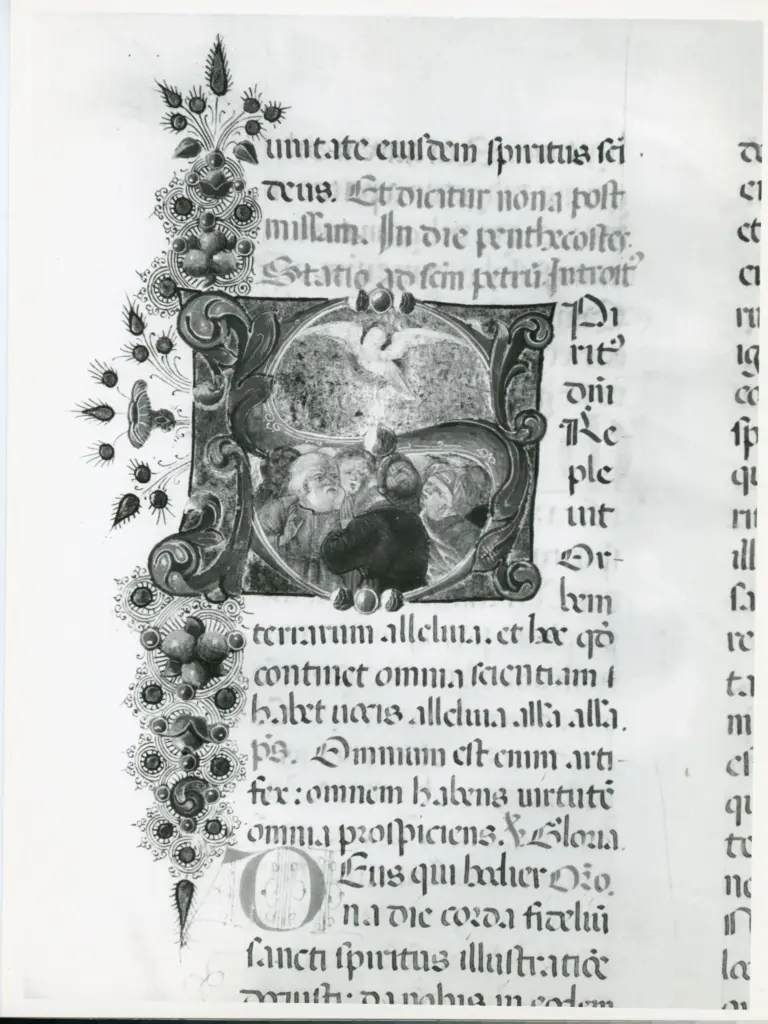 unitate eiusdem spiritus sc̄i
deus. Et dicitur nona post
missam. In die penthecostes.
Statio ad scm̄ petrū. Introit᾽
Spi
rit᾽
dn̄i
Re
ple
uit
Or-
bem
terrarum alleluia. et hoc qđ
continet omnia scientiam
habet uocis alleluia all'a all'a.
ps. Omnium est enim arti-
fex: omnem habens uirtutē
omnia prospiciens. ℣ Gloria.
Deus qui hodier Oro.
na die corda fideliū
sancti spiritus illustratiōe
docuisti: da nobis in eodem